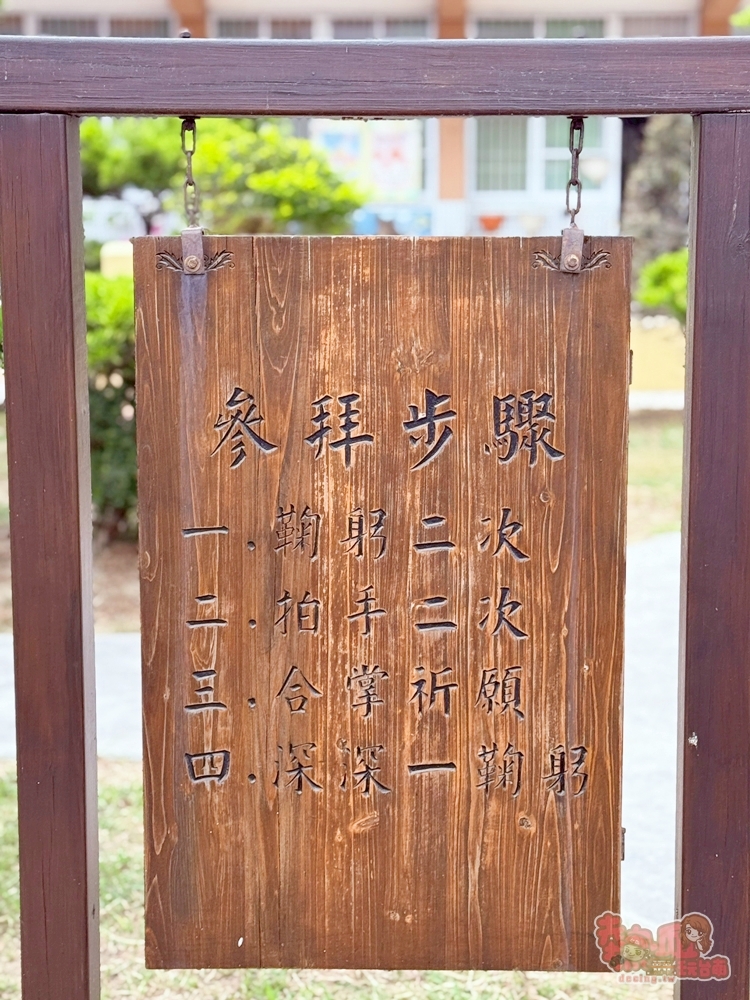 參拜步驟
一.鞠躬二次
二.拍手二次
三.合掌祈願
四.深深一鞠躬